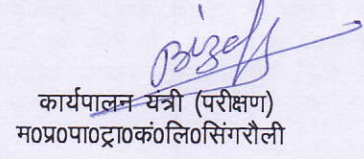 कार्यपालन यंत्री (परीक्षण)
म०प्र०पा०ट्रा०कं०लि०सिंगरौली